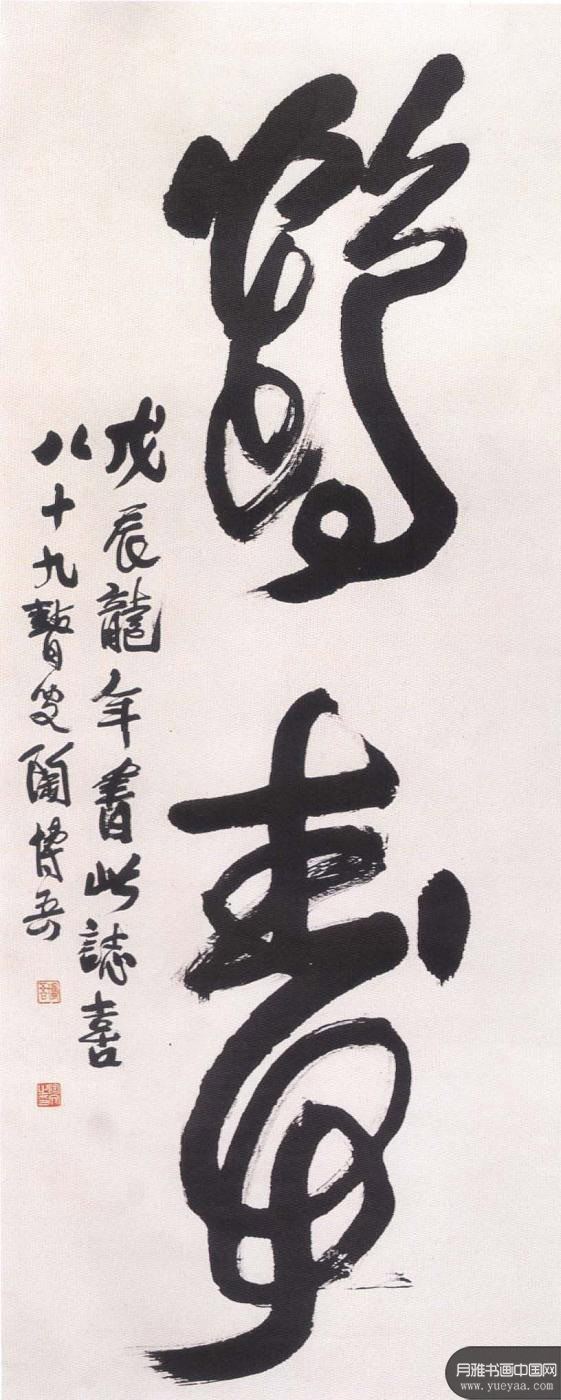 壽
戊辰龍年書此誌喜
八十九瞽叟陶博吾
月雅书画中国网
www.yueyaa.com